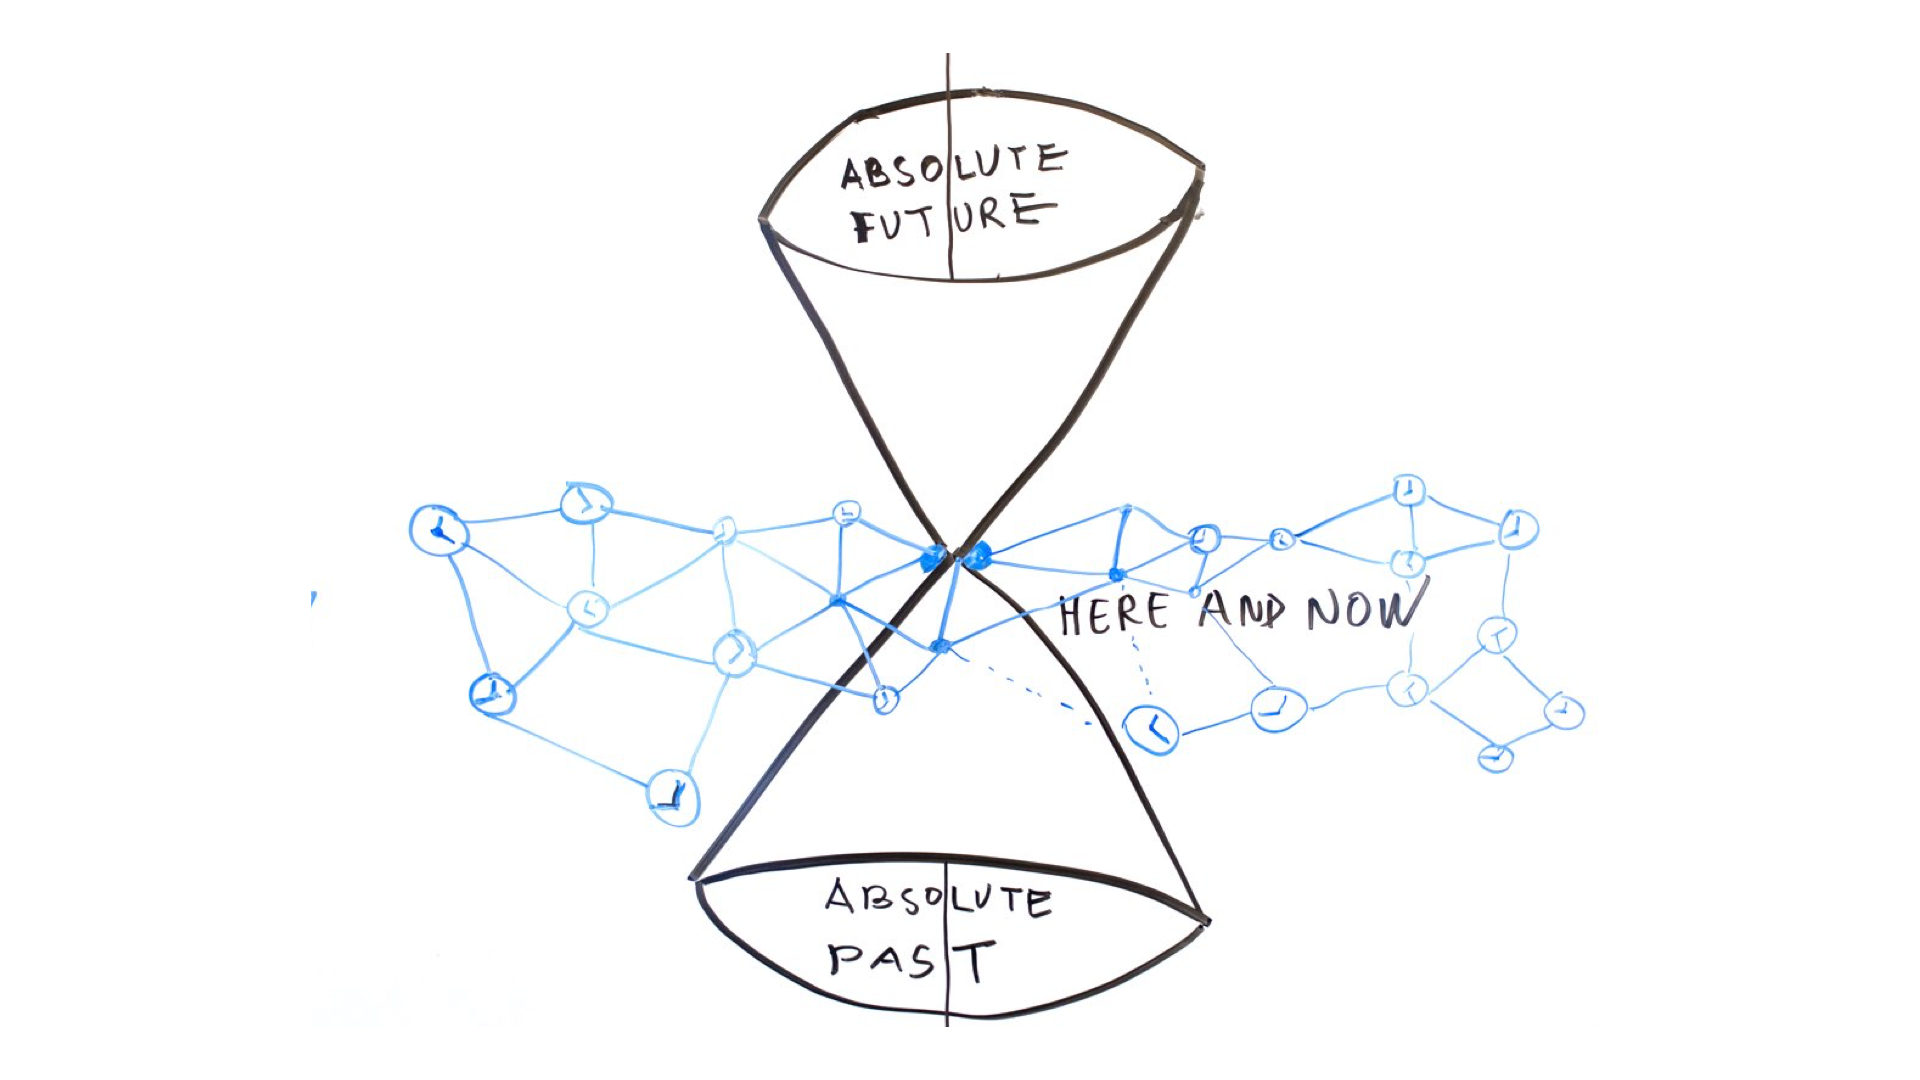 ABSOLUTE
FUTURE
HERE AND NOW
ABSOLUTE
PAST